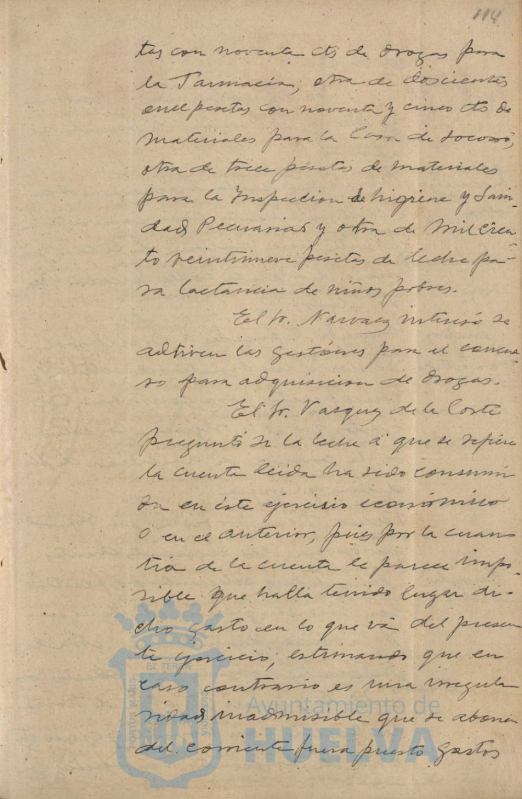 114
tas con noventa cts de drogas para
la Farmacia, otra de doscientas
once pesetas con noventa y cinco cts de
materiales para la Casa de socorro,
otra de trece pesetas de materiales
para la Inspeccion de higiene y Sani
dad Pecuarias y otra de mil cien
to veintinueve pesetas de leche pa-
ra lactancia de niños pobres.
El Sr. Narvaez interesó se
activen las gestiones para el concur
so para adquisicion de drogas.
El Sr. Vazquez de la Corte
preguntó si la leche á que se refiere
la cuenta leida ha sido consumi
da en éste ejercicio económico
o en el anterior, pues por la cuan
tia de la cuenta le parece impo
sible que halla tenido lugar di-
cho gasto en lo que vá del presen
te ejercicio, estimando que en
caso contrario es una irregula
ridad inadmisible que se abone
del corriente presupuesto gastos
Ayuntamiento de
HUELVA